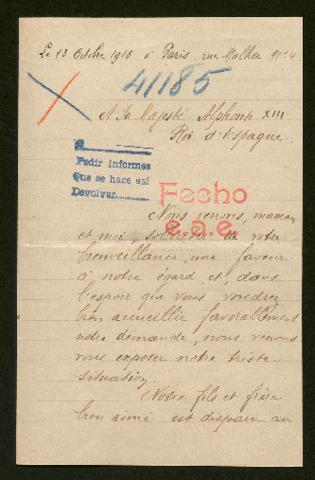 Le 13 Octobre 1916 à Paris, rue Malher N° 4
41185
A Sa Majesté Alphonse XIII
Roi d'Espagne.
Pedir informes
Que se hace así
Devolver
Fecho
e.a.e.
Nous venons, maman
et moi, solliciter de votre
bienveillance, une faveur
à notre égard et, dans
l'espoir que vous voudrez
bien accueillir favorablement
notre demande, nous venons
vous exposer notre triste
situation.
Notre fils et frère
bien aimé est disparu au